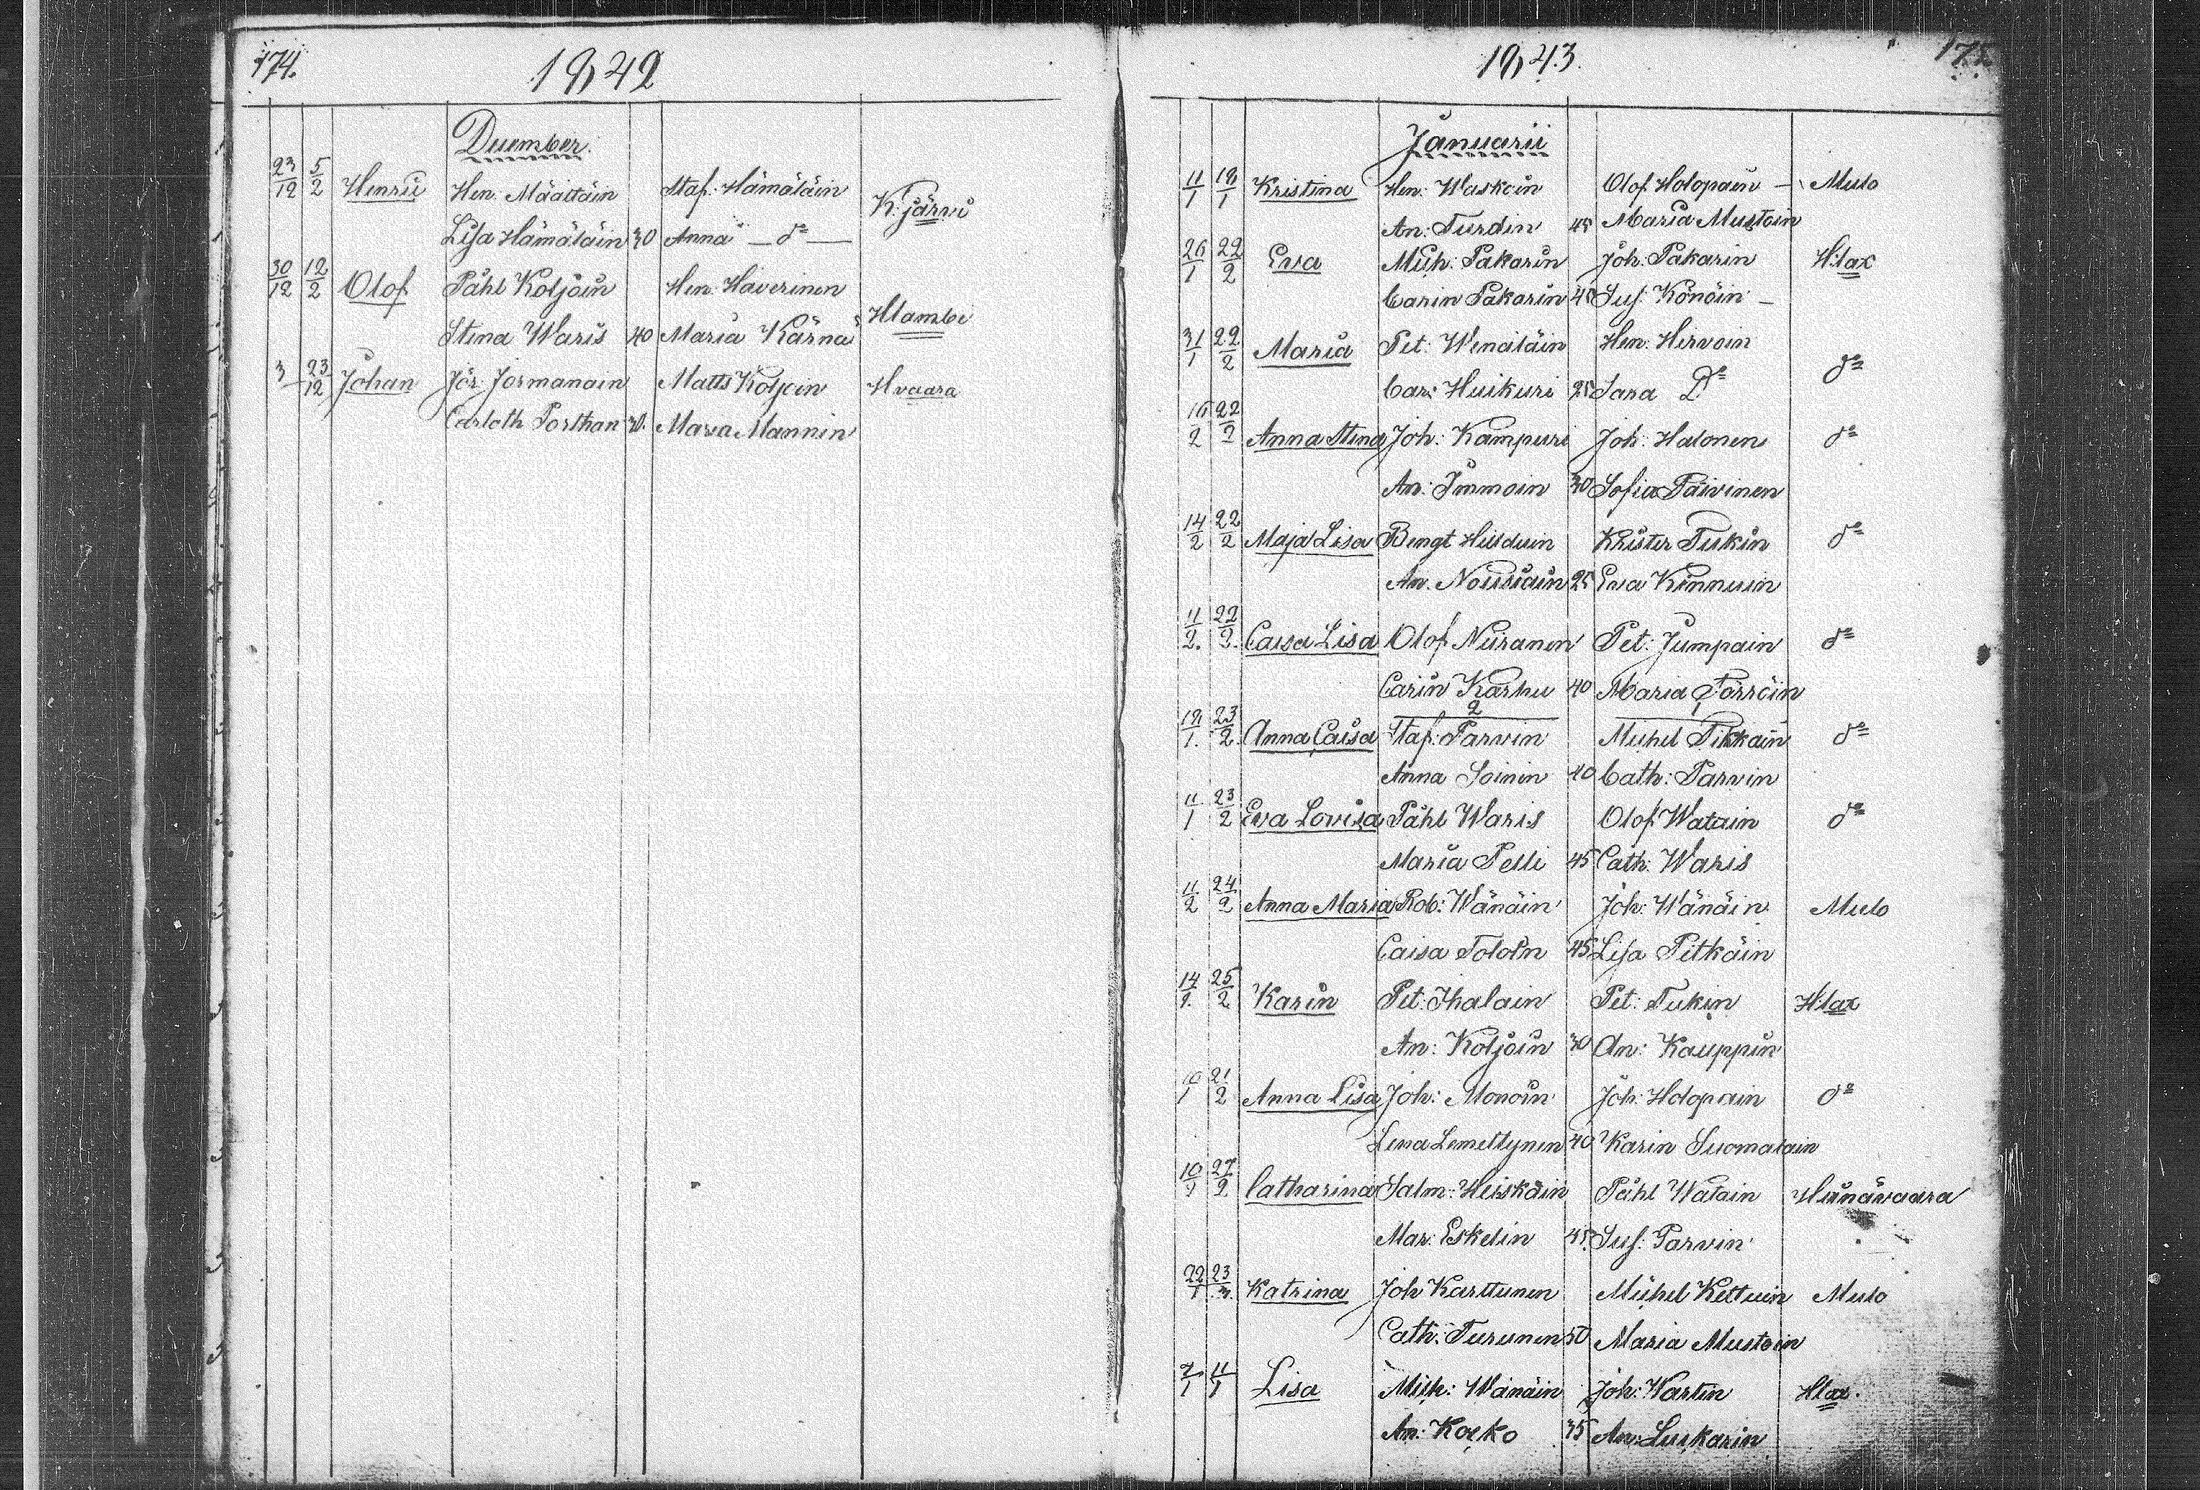 174.
1842
December.
23/12 5/2 Henric Hen. Määttäin Staf. Hämäläin K:järvi
Lisa Hämäläin 30 Anna — d:o —
30/12 12/2 Olof Påhl Koljoin Hen. Haverinen
Hlambi
Stina Waris 40 Maria Kärnä
3 23/12 Johan Jör. Jormanain Matts Koljoin Hvaara
Carloth Porthan 30. Maria Mannin
1843.
175.
Januarii
11/1 18/1 Kristina Hen: Waskoin Olof Holopain — Mulo
An: Turdin 45 Maria Mustoin
26/1 22/2 Eva Mich. Pakarin Joh: Pakarin H:lax
Carin Pakarin 45 Sus. Könöin —
31/1 22/2 Maria Pet: Wenäläin Hen. Hirvoin d:o
Car: Huikuri 25 Sara D:o
16/2 22/2 Anna Stina Joh: Kampuri Joh: Halonen d:o
An: Immoin 30 Sofia Päivinen
14/2 22/2 Maja Lisa Bengt Hilduin Krister Tukin d:o
An. Nousiain 25 Eva Kinnuin
11/2. 22/2. Caisa Lisa Olof Niiranen Pet: Jumpain d:o
Carin Karhu 40 Maria Pörröin
2 1
18/1. 23/2 Anna Caisa Staf: Parvin Michel Pikkain d:o
Anna Soinin 40 Cath: Parvin
11/1 23/2 Eva Lovisa Påhl Waris Olof Watain d:o
Maria Pelli 45 Cath. Waris
11/2 24/2 Anna Maria Rob: Wänäin Joh: Wänäin Mulo
Caisa Tolo:n 45 Lisa Pitkäin
14/1. 25/2 Karin Pet: Ihalain Pet: Tukin Hlax
An: Koljoin 30 An: Kauppin
10/1 21/2 Anna Lisa Joh: Monoin Joh: Holopain d:o
Lena Lemettynen 40 Karin Suomalain
10/1 27/2 Catharina Salm: Heiskain Påhl Watain Hiinävaara
Mar: Eskelin 45. Sus: Parvin
22/1 23/3. Katrina Joh Karttunen Michel Kettuin Mulo
Cath: Turunen 50 Maria Mustoin
7/1 11/1 Lisa Mich: Wänäin Joh: Wartin Hlax.
An: Kocko 35 An: Luskarin